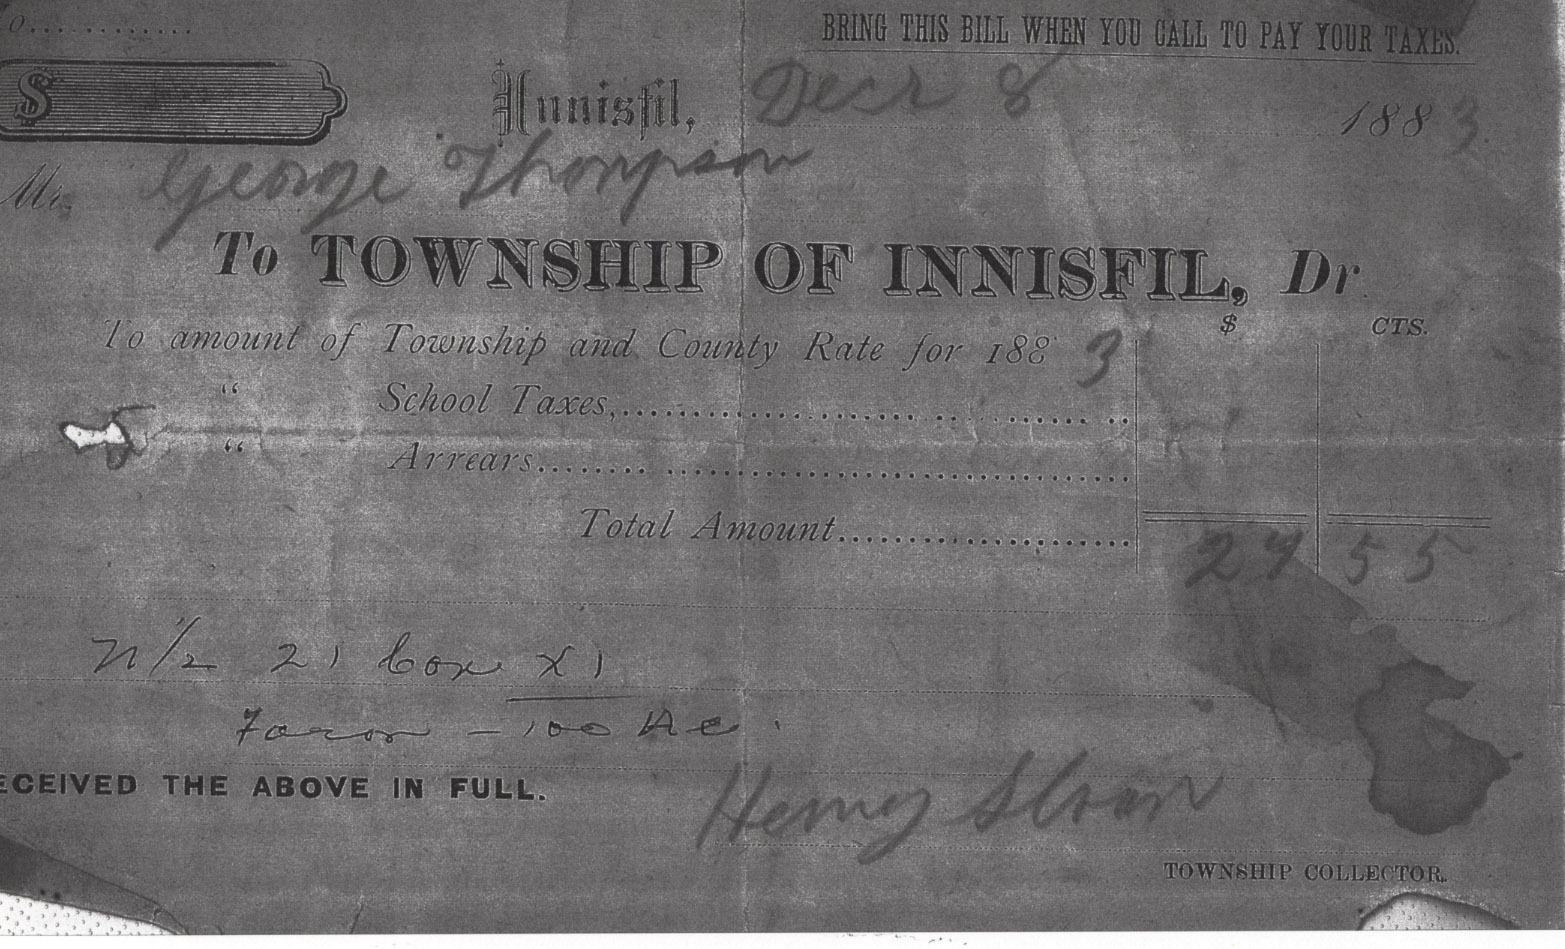 o............
BRING THIS BILL WHEN YOU CALL TO PAY YOUR TAXES.
$
Innisfil, Decr 8 1883.
Mr. George Thompson
To TOWNSHIP OF INNISFIL, Dr.
$ CTS.
To amount of Township and County Rate for 1883
" School Taxes,..............................
" Arrears..............................
Total Amount.............................. 27 55
N 1/2 21 Con XI
Farm - 100 Ac.
ECEIVED THE ABOVE IN FULL.
Henry Sloan
TOWNSHIP COLLECTOR.